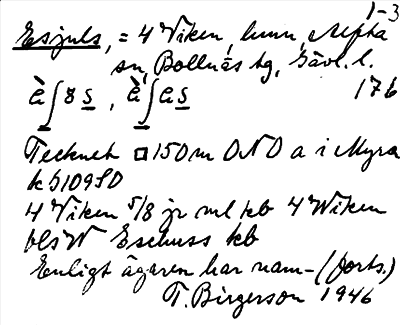 1-3
Esjuls, = 4 Viken, hmn, Alfta
sn, Bollnäs tg, Gävl. l.
176
Tecknet □ 150 m ONO a i Myra
kb 109 SO
4 Viken 5/8 jr ml kb 4 Wiken
bls W Eschuss kb
Enligt ägaren har nam- (forts.)
T. Birgerson 1946